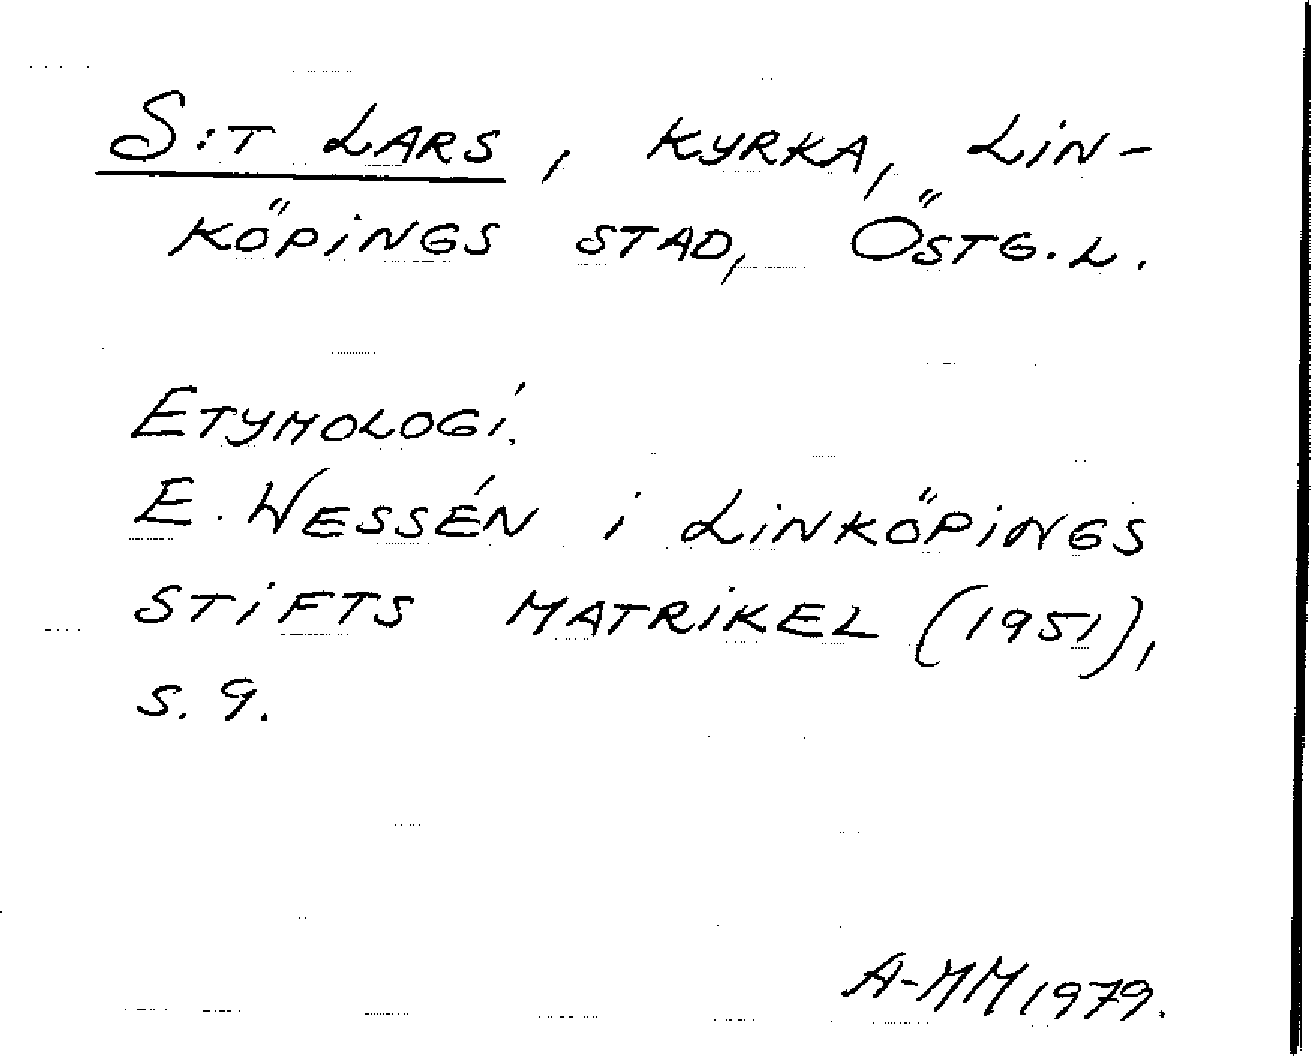 S:T LARS, KYRKA, LIN-
KÖPINGS STAD, ÖSTG.L.
ETYMOLOGI.
E. WESSÉN i LINKÖPINGS
STIFTS MATRIKEL (1951),
S. 9.
A-MM 1979.